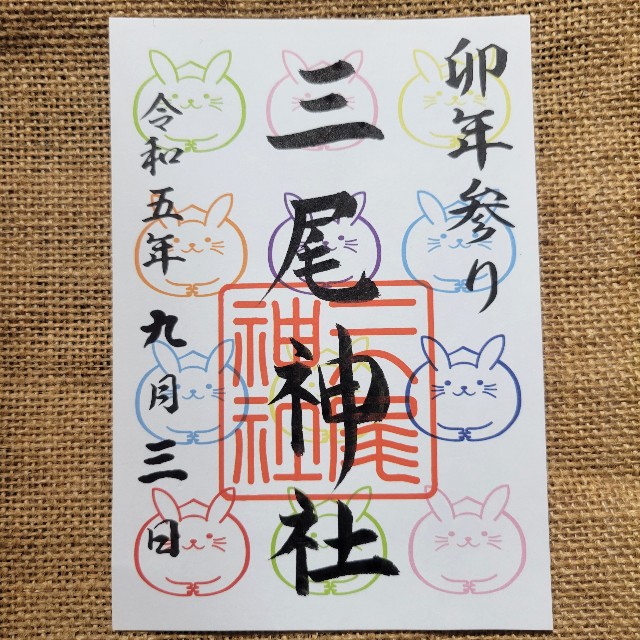 卯年参り
三尾神社
三尾神社
令和五年九月三日